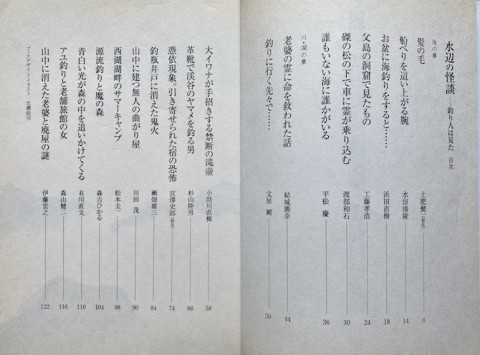 水辺の怪談 釣り人は見た 目次
海の章
髪の毛 土肥健二 6
船べりを這い上がる腕 水留清隆 14
お盆に海釣りをすると…… 浜田直樹 18
父島の洞窟で見たもの 工藤孝浩 24
磔の松の下で車に霊が乗り込む 渡部和石 30
誰もいない海に誰かがいる 平松慶 36
川・湖の章
老婆の霊に命を救われた話 結城勝幸 44
釣りに行く先々で…… 又野剛 50
大イワナが手招きする禁断の滝壺 小助川直樹 58
革靴で渓谷のヤマメを釣る男 杉山時男 66
憑依現象。引き寄せられた宿の恐怖 宮澤史郎 74
釣瓶井戸に消えた鬼火 瀬畑雄三 84
山中に建つ無人の曲がり屋 川田茂 90
西湖湖畔のサマーキャンプ 松本圭一 98
源流釣りと魔の森 森吉ひかる 104
青白い光が森の中を追いかけてくる 有川直文 110
アユ釣りと老舗旅館の女 森山健二 116
山中に消えた老婆と廃屋の謎 伊藤宏之 122